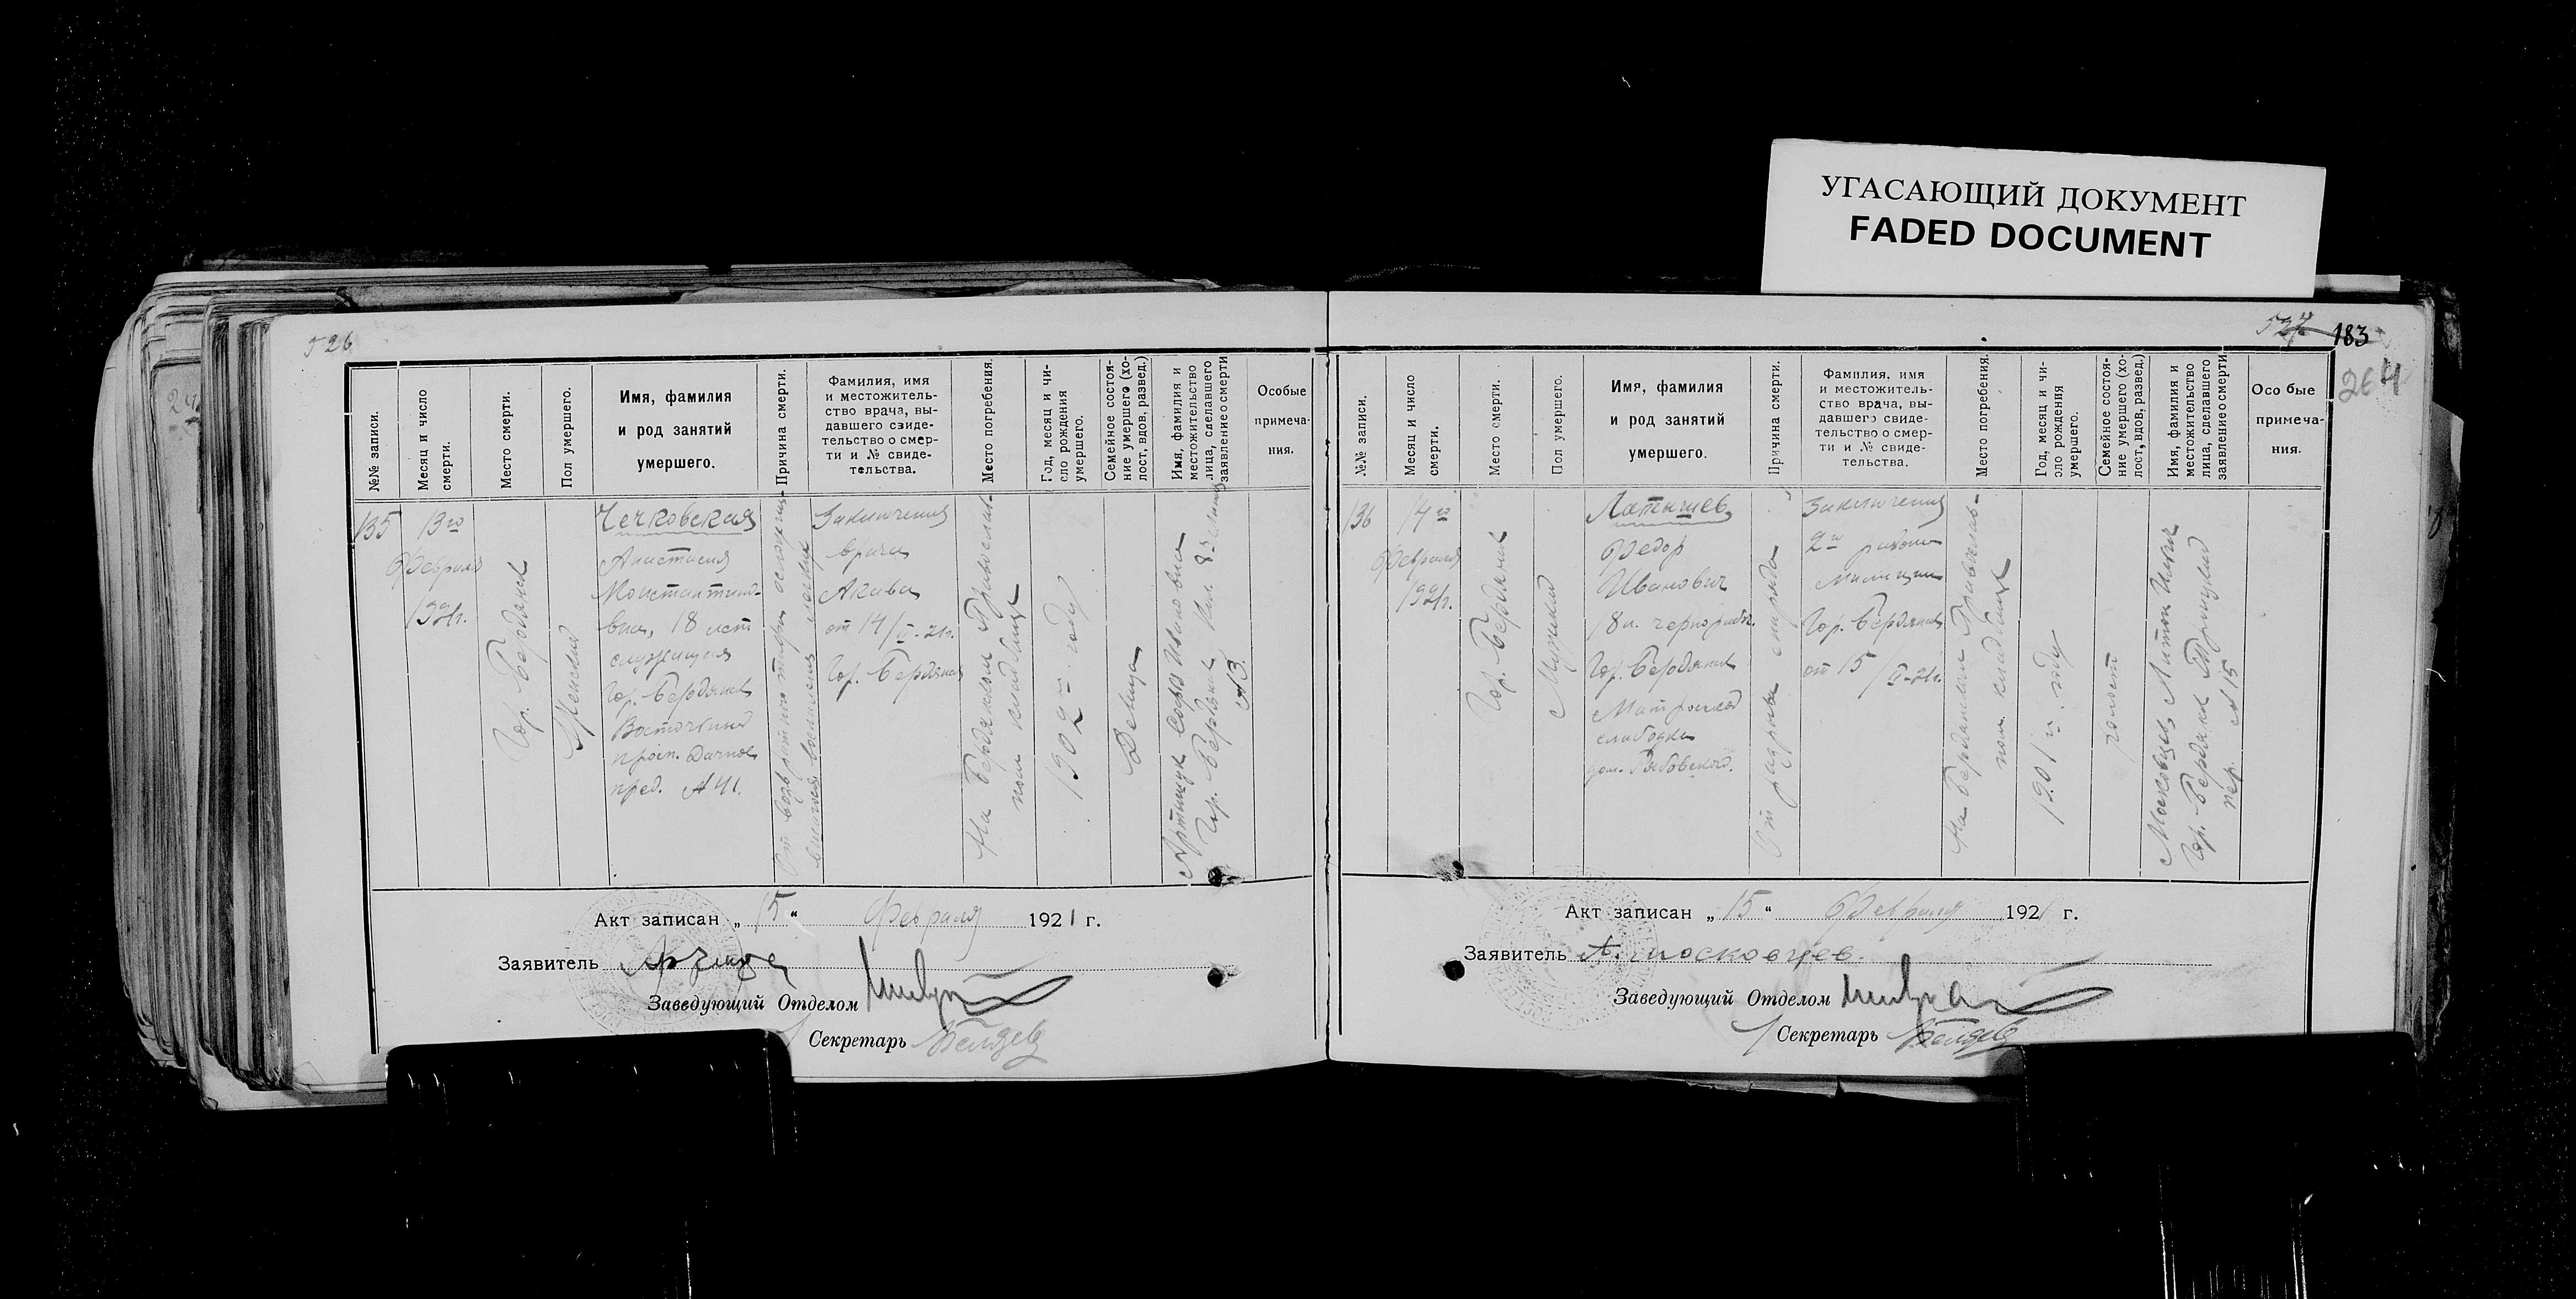 УГАСАЮЩИЙ ДОКУМЕНТ
FADED DOCUMENT
526
№№ записи.
Месяц и число
смерти.
Место смерти.
Пол умершего.
Имя, фамилия
и род занятий
умершего.
Причина смерти.
Фамилия, имя
и местожитель-
ство врача, вы-
давшего свиде-
тельство о смер-
ти и № свиде-
тельства.
Место погребения.
Год, месяц и чи-
сло рождения
умершего.
Семейное состоя-
ние умершего (хо-
лост, вдов, развед.)
Имя, фамилия и
местожительство
лица, сделавшего
заявление о смерти
Особые
примеча-
ния.
135
13го
Февраля
1921г.
Гор. Бердянск
Женский
Чечковская
Анастасия
Константино-
вна, 18 лет
служащая
Гор. Бердянск
Восточный
просп. Дачное
пред. №41.
От возвратного тифа осложнив-
шегося воспаления легких
Заключения
врача
Акива
от 14/II-21г.
Гор. Бердянск
На Бердянском Православ-
ном кладбище
1902 г. году
Девица
Артищук Софья Ивановна
Гор. Бердянск
№3.
Акт записан „15“ Февраля 1921 г.
Заявитель
Заведующий Отделом
Секретарь
527
183
264
№№ записи.
Месяц и число
смерти.
Место смерти.
Пол умершего.
Имя, фамилия
и род занятий
умершего.
Причина смерти.
Фамилия, имя
и местожитель-
ство врача, вы-
давшего свиде-
тельство о смер-
ти и № свиде-
тельства.
Место погребения.
Год, месяц и чи-
эло рождения
умершего.
Семейное состоя-
ние умершего (хо-
лост, вдов, развед.)
Имя, фамилия и
местожительство
лица, сделавшего
заявление о смерти
Осо бые
примеча-
ния.
136
14го
Февраля
1921г.
Гор. Бердянск
Мужской
Латышев
Федор
Иванович
18л. чернорабоч.
Гор. Бердянск
Матросская
слободка
От разрыва снаряда
Заключения
2го района
милиции
Гор. Бердянск
от 15/II-21г.
На Бердянском Православ-
ном кладбище
1901 г. году
холост
Московцев Антон Ильич
Гор. Бердянск Троицкий
пер. №15
Акт записан „15“ Февраля 192 г.
Заявитель А. Московцев.
Заведующий Отделом
Секретарь